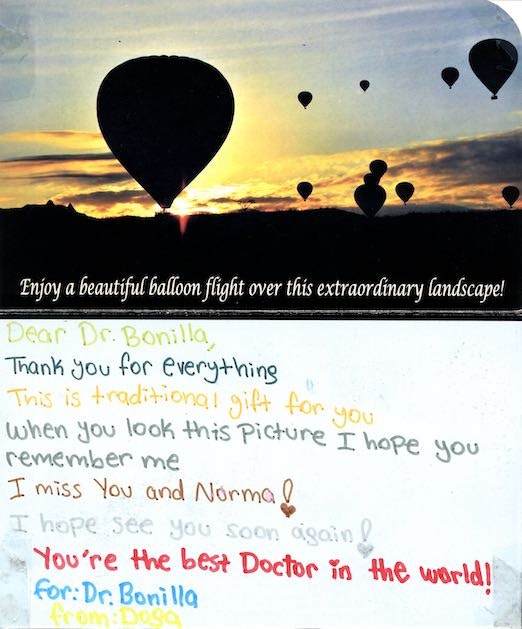 Enjoy a beautiful balloon flight over this extraordinary landscape!
Dear Dr. Bonilla,
Thank you for everything
This is traditional gift for you
When you look this Picture I hope you
remember me
I miss You and Norma!
I hope see you soon again!
You're the best Doctor in the world!
For: Dr. Bonilla
from: Dosa